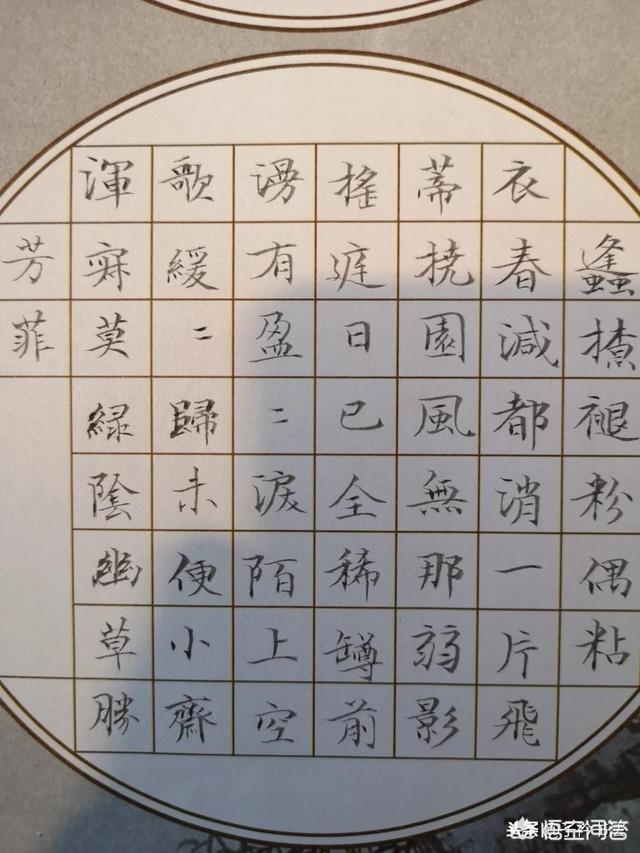 蠭撩褪粉偶粘
衣春減都消一片飛
蒂撓園風無那弱影
搖庭日已全稀罇前
漫有盈二淚陌上空
歌緩二歸未便小齋
渾寂莫綠陰幽草勝
芳菲
悟空问答